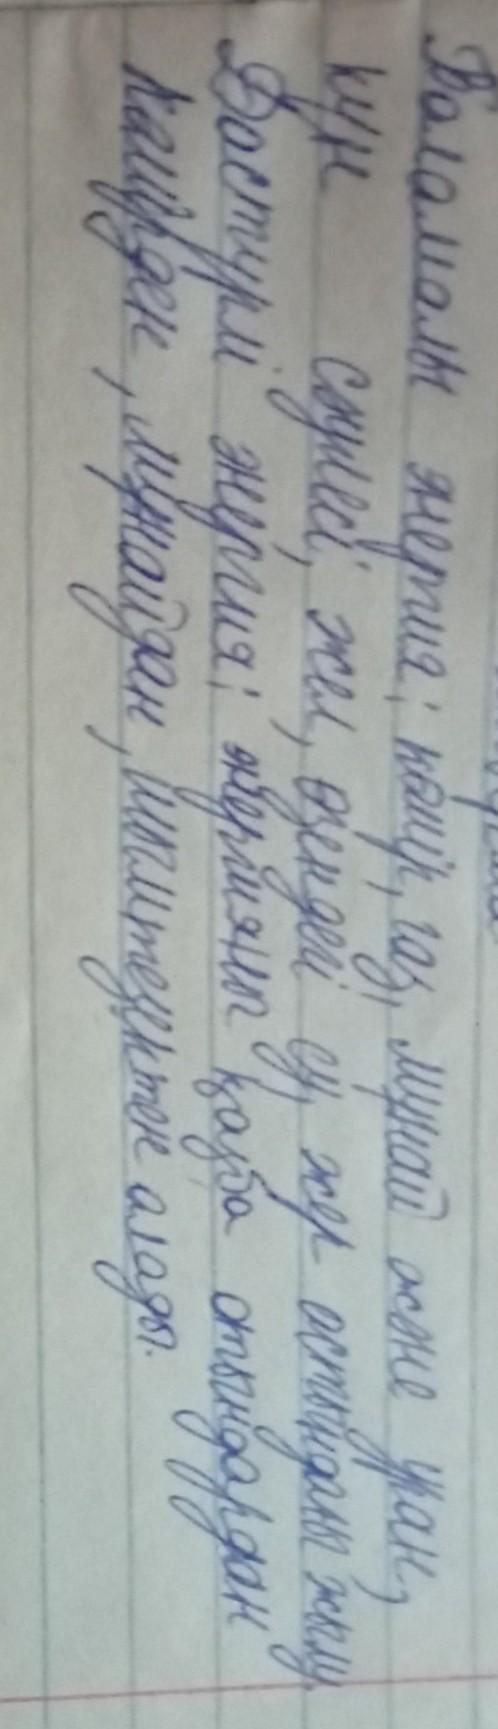 Баламалы энергия; көмір, газ, мұнай және уран,
күн сәулесі, жел, өзендегі су, жер астындағы жылу.
Дәстүрлі энергия; энергияны қазба отындардан
көмірден, мұнайдан, шымтезектен алады.